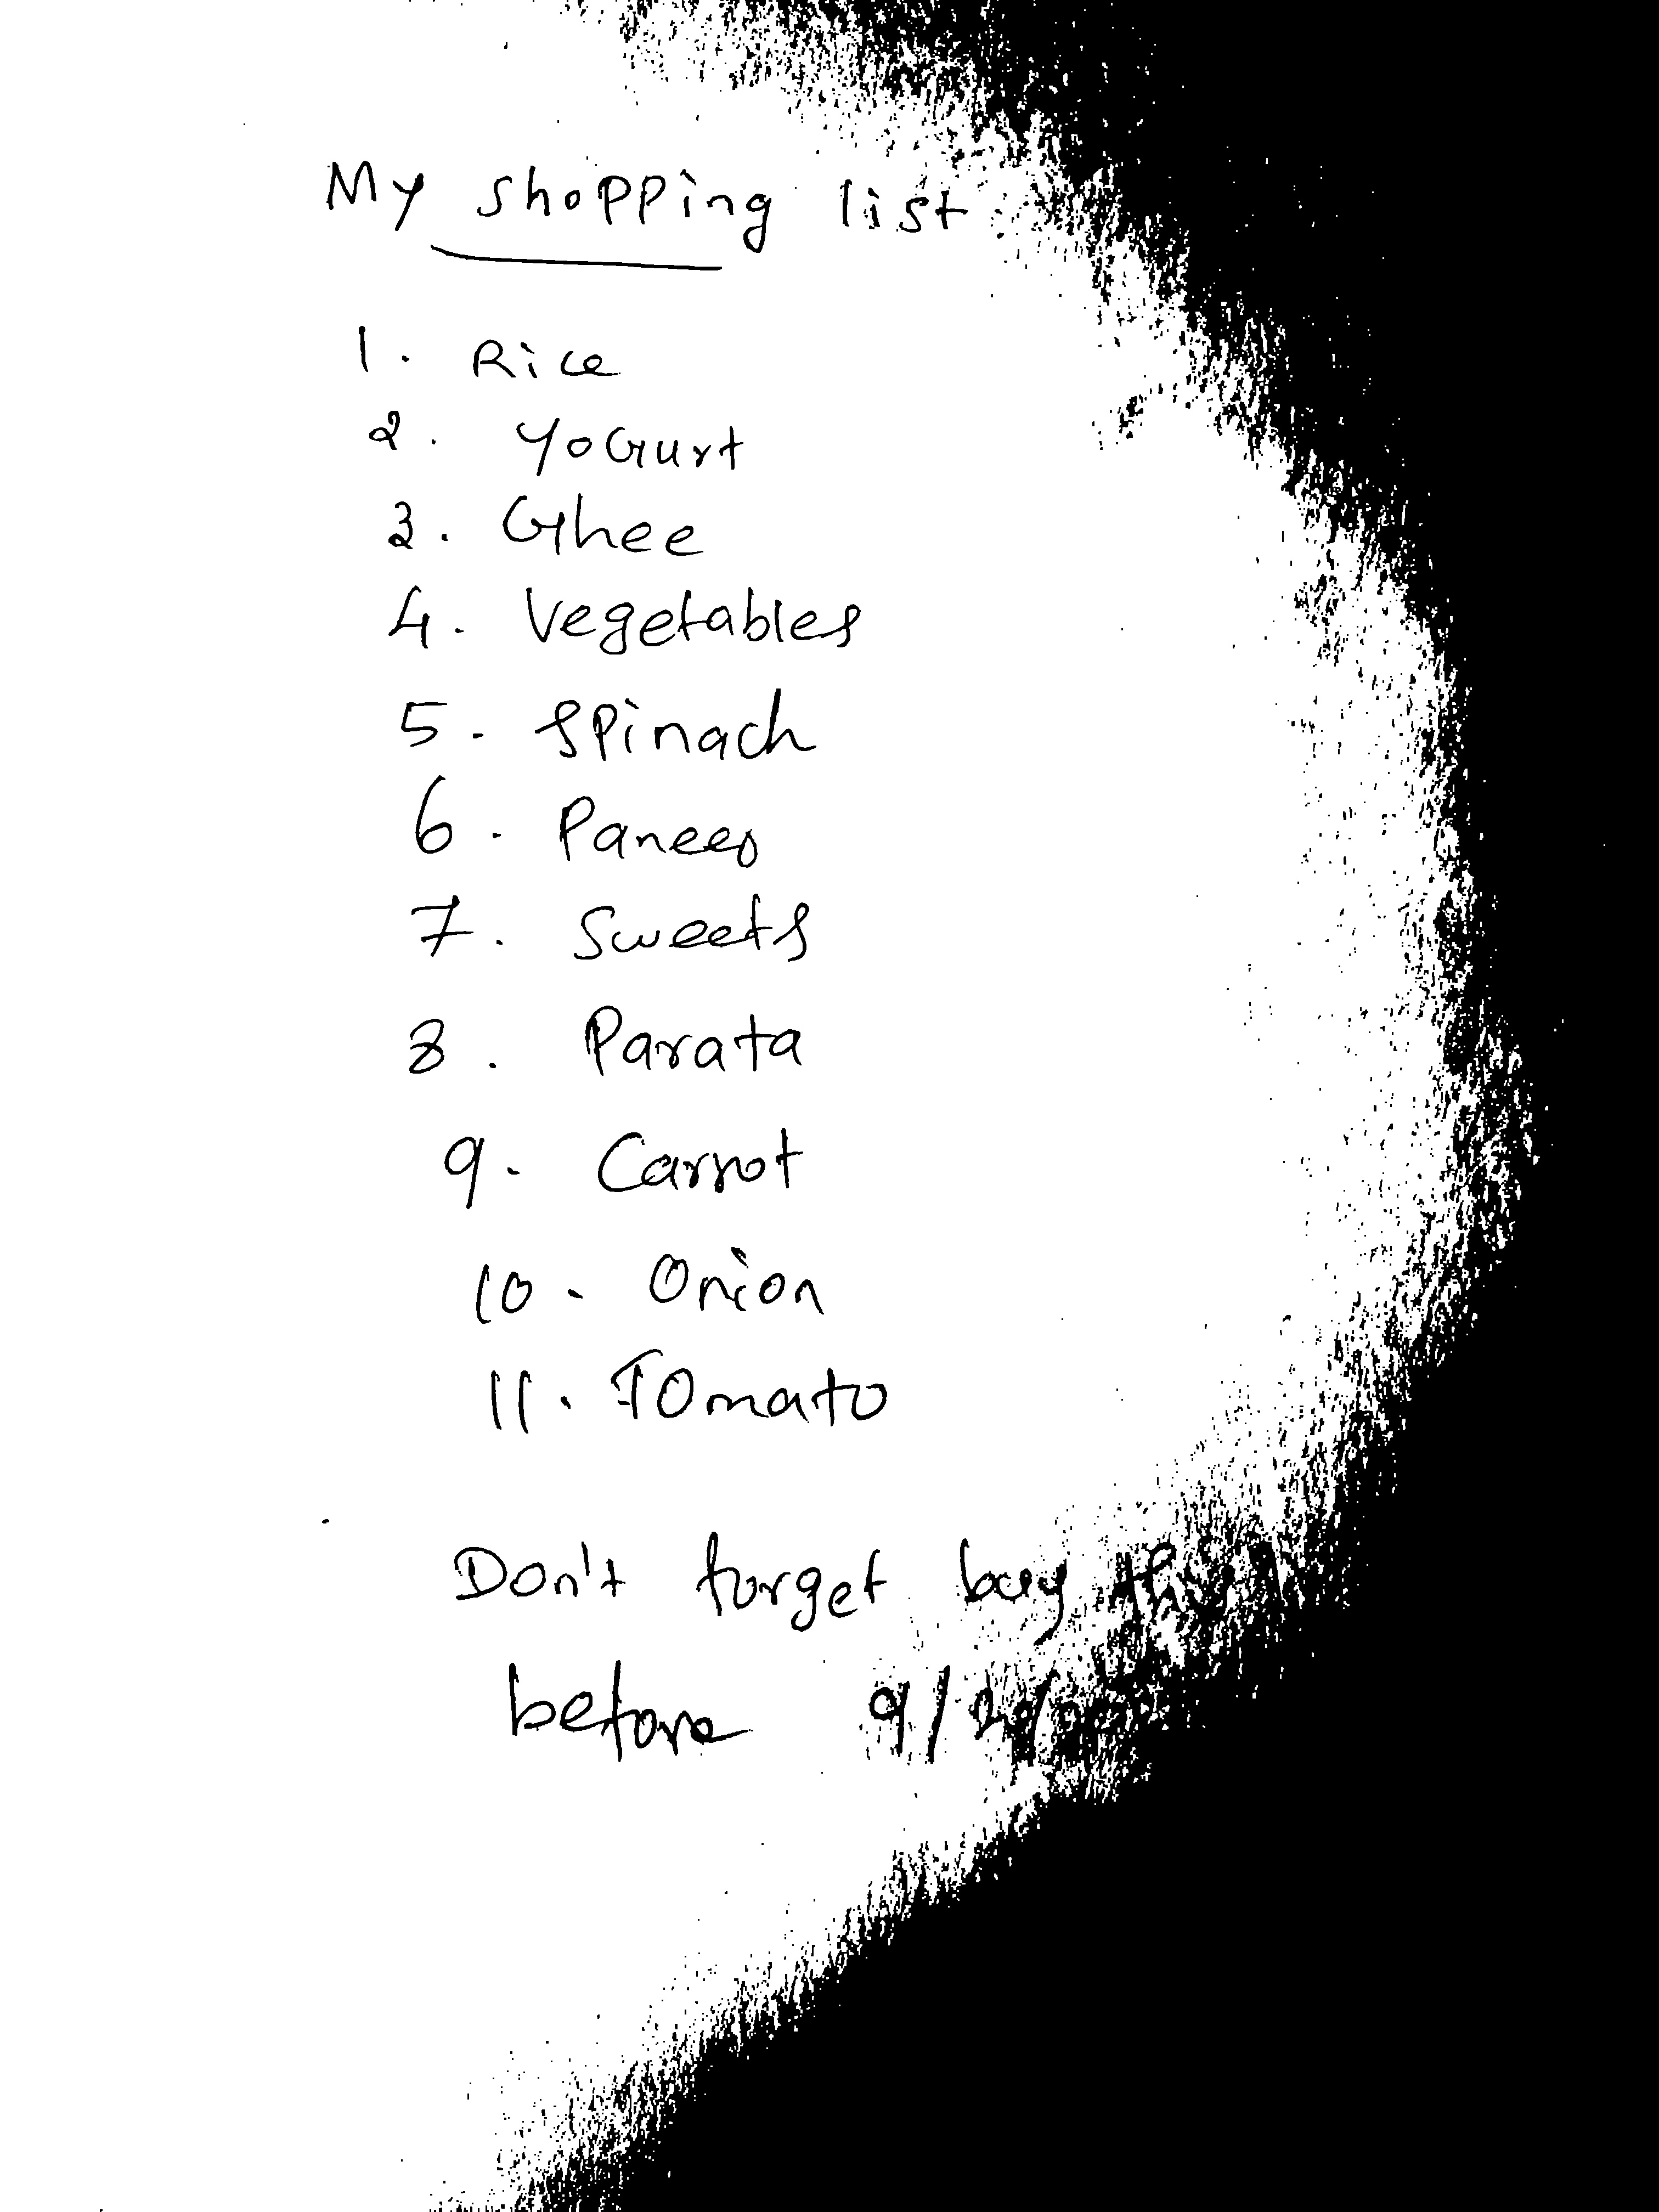 My shopping list
1. Rice
2. Yogurt
3. Ghee
4. Vegetables
5. Spinach
6. Paneer
7. Sweets
8. Parata
9. Carrot
10. Onion
11. Tomato
Don't forget buy
before